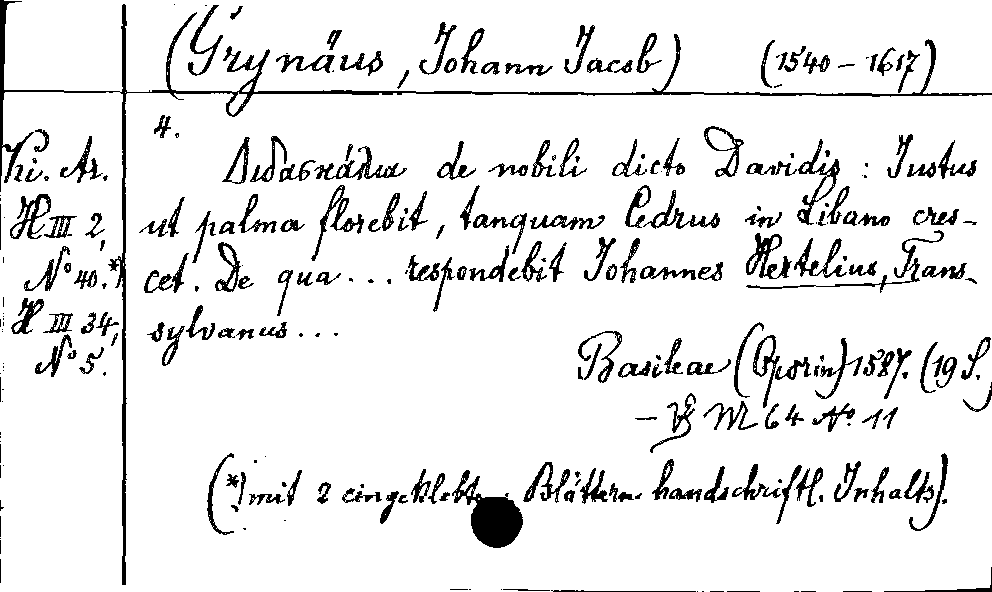 (Grynäus, Johann Jacob) (1540-1617)
4.
Ki. Ar.
H III 2,
No 40.*)
H III 34,
No 5.
Διδασκάλια de nobili dicto Davidis : Justus
ut palma florebit, tanquam Cedrus in Libano cres-
cet. De qua ... respondebit Johannes Hertelius, Trans-
sylvanus ...
Basileae (Oporin) 1587. (19 S.)
- M 64 No. 11
(*) mit 2 eingeklebten Blättern handschriftl. Inhalts).